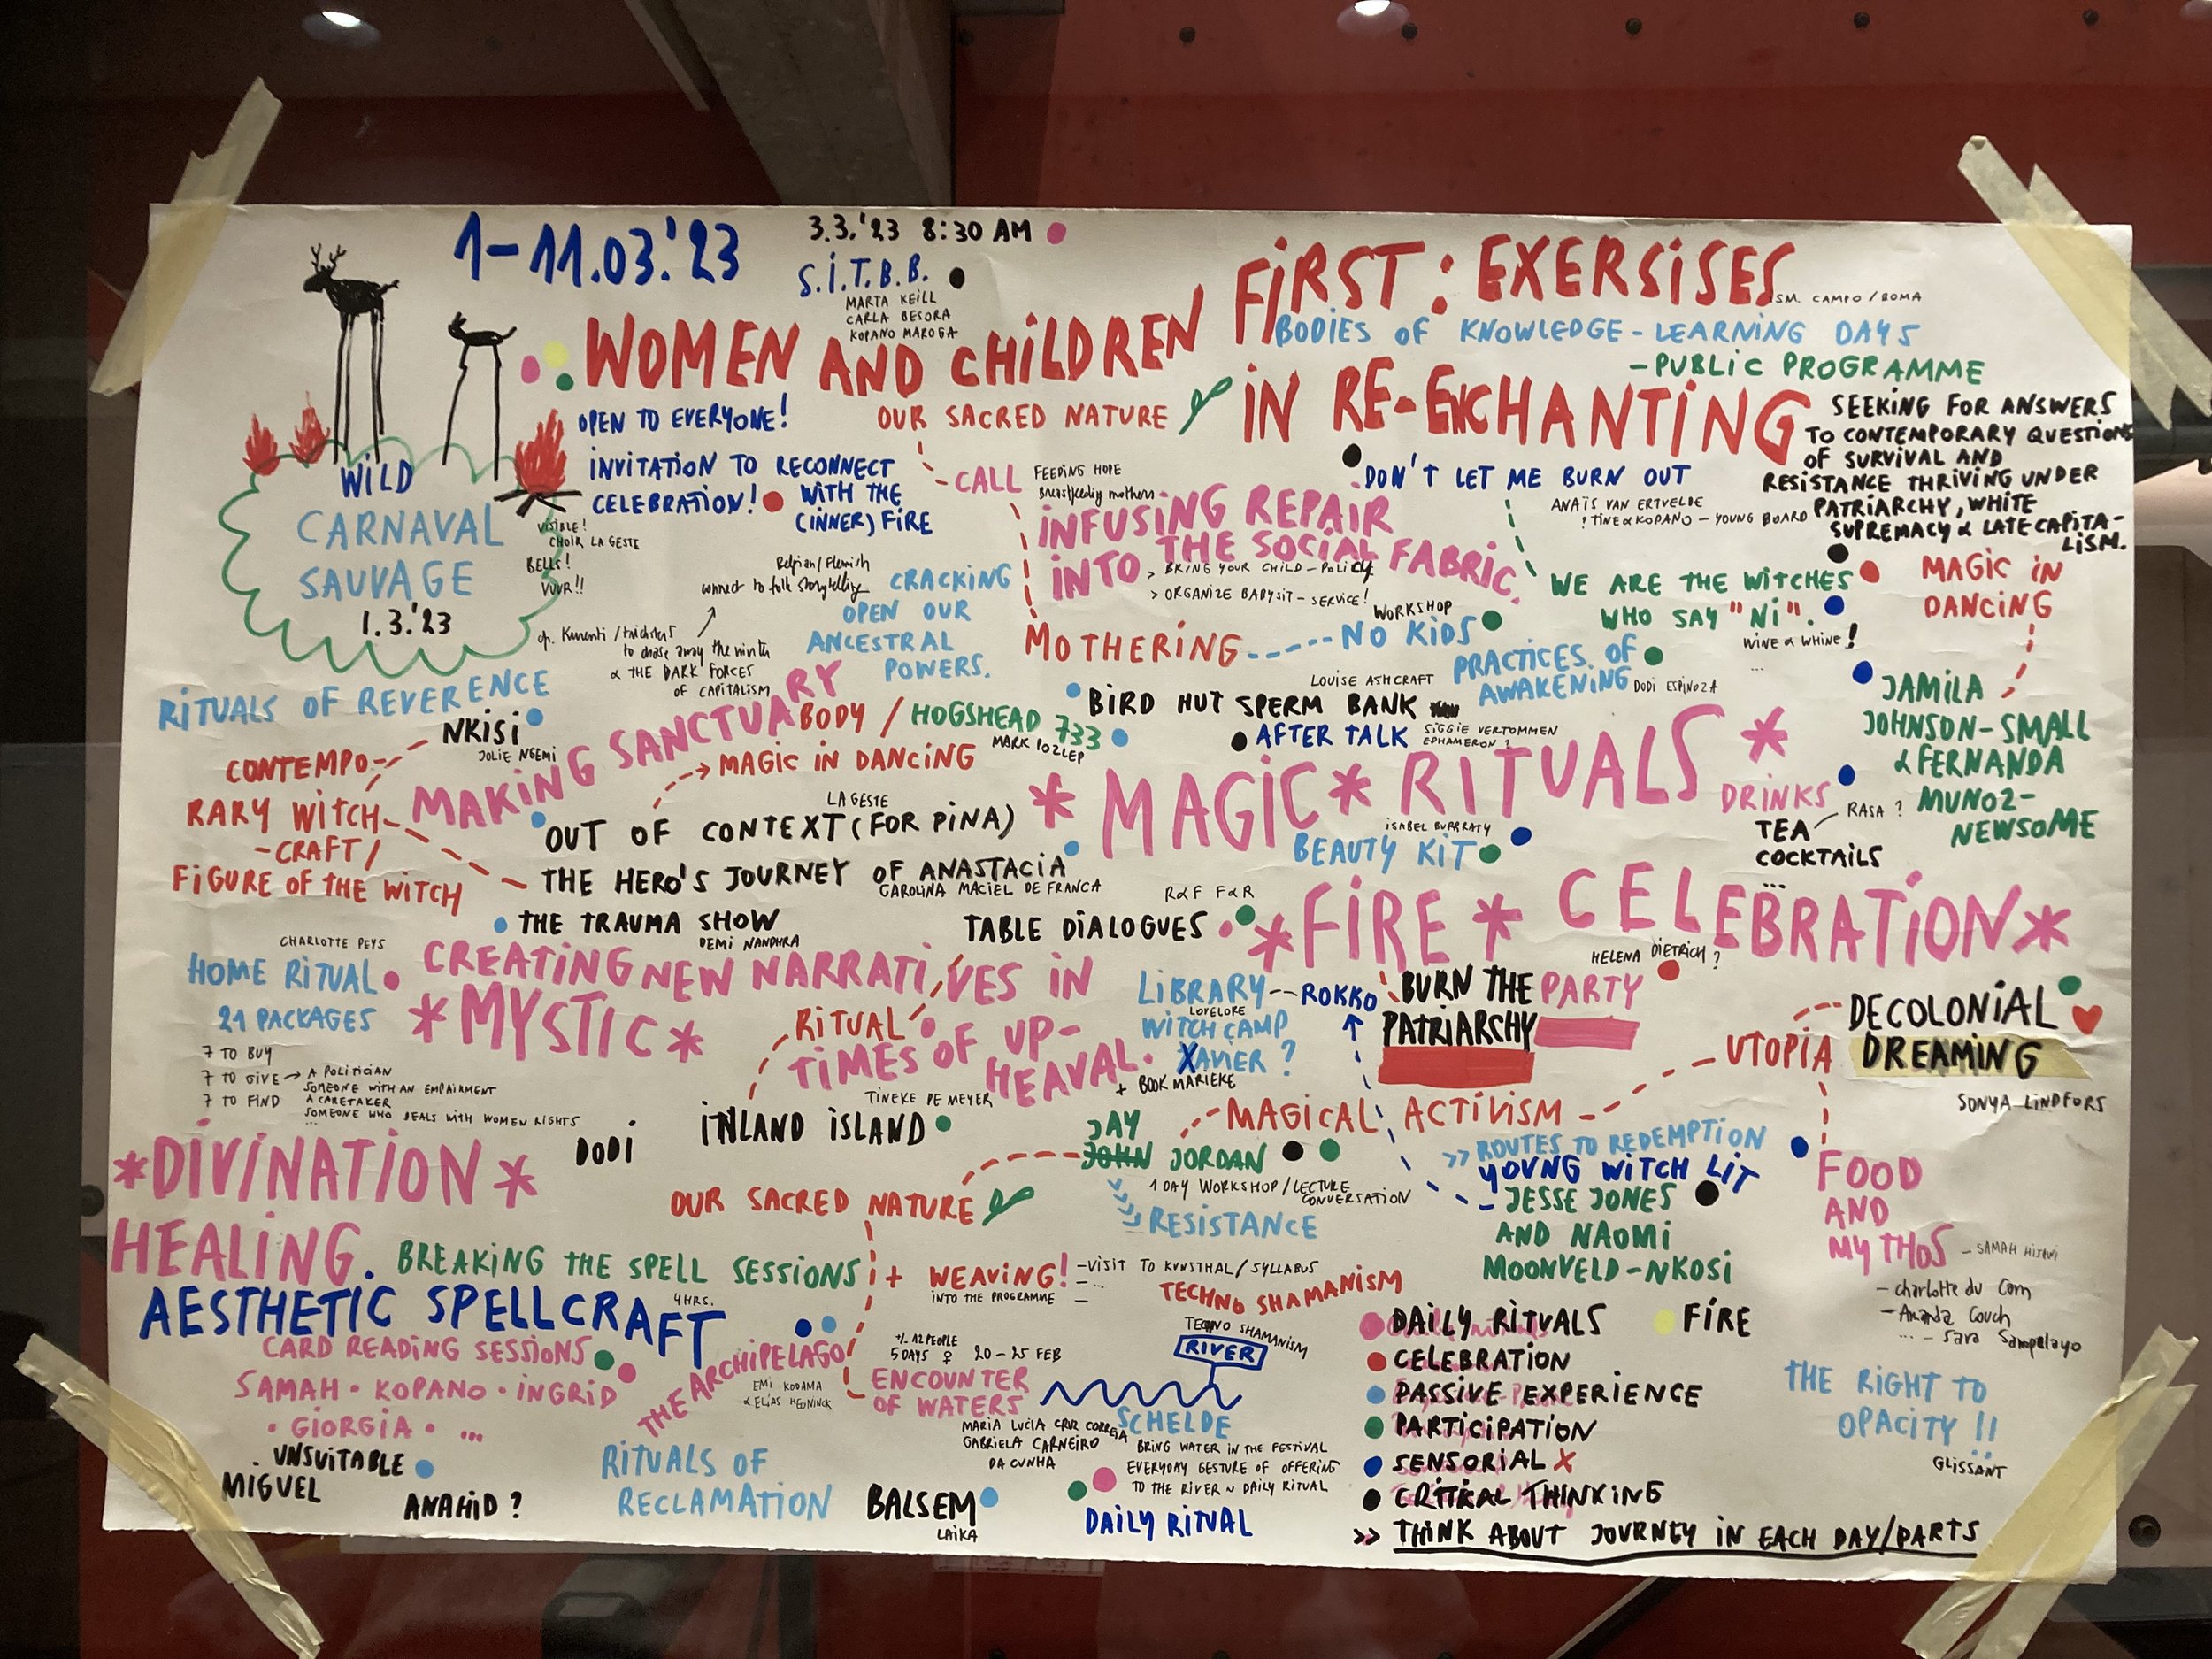 1-11.03.'23
3.3.'23 8:30 AM
S.I.T.B.B.
MARTA KEILL
CARLA BESORA
KOPANO MAROGA
WOMEN AND CHILDREN FIRST: EXERSISES
SM. CAMPO / ROMA
BODIES OF KNOWLEDGE - LEARNING DAYS
- PUBLIC PROGRAMME
IN RE-ENCHANTING
SEEKING FOR ANSWERS
TO CONTEMPORARY QUESTIONS
OF SURVIVAL AND
RESISTANCE THRIVING UNDER
PATRIARCHY, WHITE
SUPREMACY & LATE CAPITA-
LISM.
OPEN TO EVERYONE!
INVITATION TO RECONNECT
WITH THE
(INNER) FIRE
CELEBRATION!
OUR SACRED NATURE
WILD
CARNAVAL
SAUVAGE
1.3.'23
VISIBLE!
CHOIR LA GESTE
BELLS!
VUUR!!
Belgian/Flemish
connect to folk storytelling
to chase away the winter
& THE DARK FORCES
OF CAPITALISM
CRACKING
OPEN OUR
ANCESTRAL
POWERS.
CALL
FEEDING HOPE
Breastfeeding mothers
INFUSING REPAIR
INTO THE SOCIAL FABRIC.
> BRING YOUR CHILD - POLICY
> ORGANIZE BABYSIT - SERVICE!
DON'T LET ME BURN OUT
ANAÏS VAN ERTVELDE
! TINE & KOPANO - YOUNG BOARD
WE ARE THE WITCHES
WHO SAY "NI".
WINE & WHINE!
...
MAGIC IN
DANCING
JAMILA
JOHNSON-SMALL
& FERNANDA
MUNOZ-
NEWSOME
MOTHERING --- NO KIDS
WORKSHOP
PRACTICES OF
AWAKENING
DODI ESPINOZA
LOUISE ASHCRAFT
BIRD HUT SPERM BANK
AFTER TALK
SIGGIE VERTOMMEN
EPHAMERON?
RITUALS OF REVERENCE
NKISI
JOLIE NGEMI
CONTEMPO-
RARY WITCH
-CRAFT/
FIGURE OF THE WITCH
MAKING SANCTUARY
BODY / HOGSHEAD 733
MARK POZLEP
MAGIC IN DANCING
LA GESTE
OUT OF CONTEXT (FOR PINA)
THE HERO'S JOURNEY OF ANASTACIA
CAROLINA MACIEL DE FRANCA
THE TRAUMA SHOW
DEMI NANDHRA
* MAGIC * RITUALS *
ISABEL BURRATY
BEAUTY KIT
DRINKS
TEA
COCKTAILS
...
RASA ?
R&F F&R
TABLE DIALOGUES
*FIRE* CELEBRATION*
HELENA DIETRICH?
CHARLOTTE PEYS
HOME RITUAL
21 PACKAGES
7 TO BUY
7 TO GIVE → A POLITICIAN
SOMEONE WITH AN EMPAIRMENT
7 TO FIND A CARETAKER
SOMEONE WHO DEALS WITH WOMEN RIGHTS
...
CREATING NEW NARRATIVES IN
TIMES OF UP-
HEAVAL.
*MYSTIC*
RITUAL
TINEKE DE MEYER
INLAND ISLAND
DODI
LIBRARY -- ROKKO
LOVELORE
WITCH CAMP
XAVIER ?
+ BOOK MARIEKE
BURN THE PARTY
PATRIARCHY
UTOPIA
DECOLONIAL
DREAMING
SONYA LINDFORS
MAGICAL ACTIVISM
JAY
JOHN JORDAN
1 DAY WORKSHOP/LECTURE
CONVERSATION
RESISTANCE
>> ROUTES TO REDEMPTION
YOUNG WITCH LIT
JESSE JONES
AND NAOMI
MOONVELD-NKOSI
FOOD
AND
MYTHOS
- charlotte du Cann
- Amanda Couch
... - Sara Sampelayo
*DIVINATION*
HEALING.
BREAKING THE SPELL SESSIONS
OUR SACRED NATURE
+ WEAVING!
INTO THE PROGRAMME
- VISIT TO KUNSTHAL/SYLLABUS
- ...
TECHNO SHAMANISM
AESTHETIC SPELLCRAFT
4HRS.
CARD READING SESSIONS
SAMAH · KOPANO · INGRID
· GIORGIA · ...
THE ARCHIPELAGO
EMI KODAMA
& ELIAS HEUNINCK
+/- 12 PEOPLE
5 DAYS ♀ 20-25 FEB
ENCOUNTER
OF WATERS
MARIA LUCIA CRUZ CORREIA
GABRIELA CARNEIRO
DA CUNHA
TECHNO SHAMANISM
RIVER
SCHELDE
BRING WATER IN THE FESTIVAL
EVERYDAY GESTURE OF OFFERING
TO THE RIVER ~ DAILY RITUAL
DAILY RITUAL
UNSUITABLE
MIGUEL
ANAHID ?
RITUALS OF
RECLAMATION
BALSEM
LAIKA
DAILY RITUALS
FIRE
CELEBRATION
PASSIVE EXPERIENCE
PARTICIPATION
SENSORIAL X
CRITICAL THINKING
>> THINK ABOUT JOURNEY IN EACH DAY/PARTS
THE RIGHT TO
OPACITY !!
GLISSANT